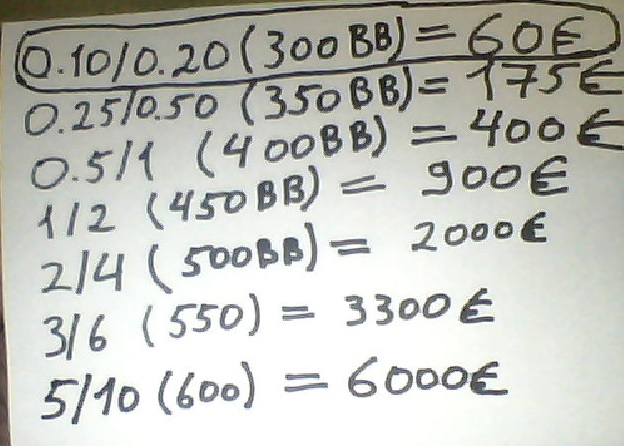 0.10/0.20 (300BB) = 60€
0.25/0.50 (350BB) = 175€
0.5/1 (400BB) = 400€
1/2 (450BB) = 900€
2/4 (500BB) = 2000€
3/6 (550) = 3300€
5/10 (600) = 6000€